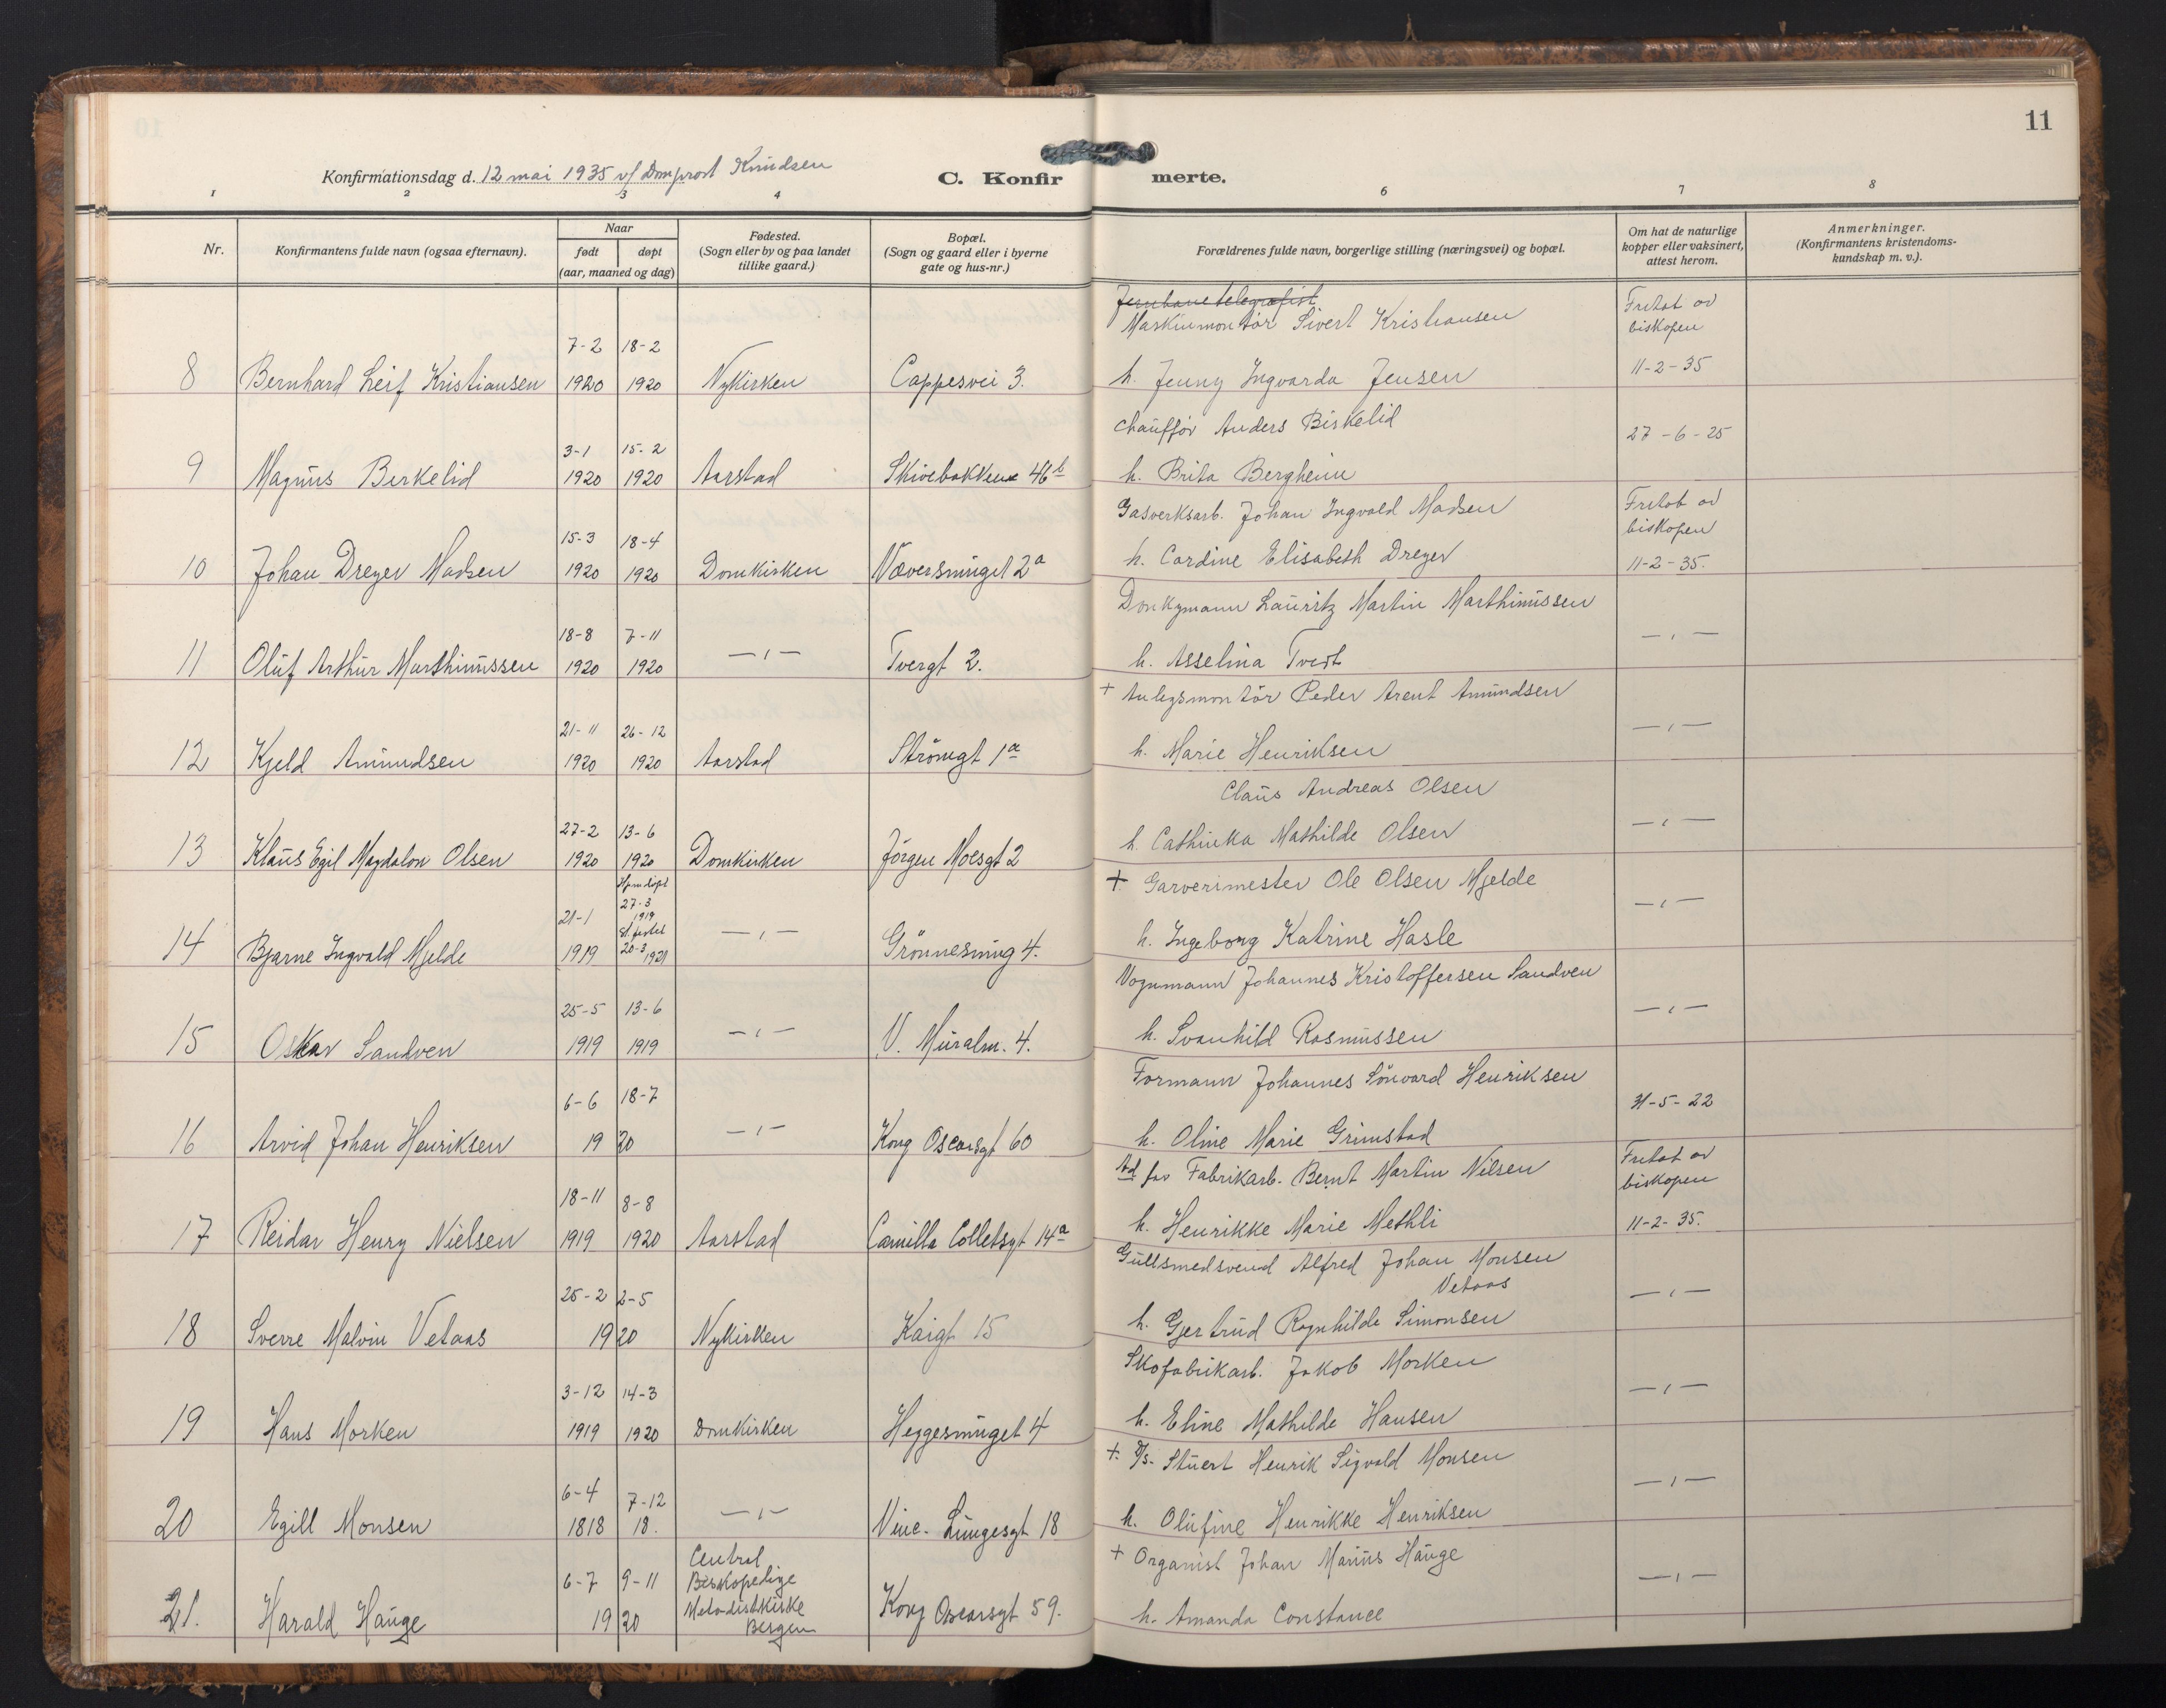 11
Konfirmationsdag d. 12 mai 1935 v/ Domprost Knudsen
C. Konfirmerte.
1 2 3 4 6 7 8
Nr.
Konfirmantens fulde navn (ogsaa efternavn).
Naar
født døpt
(aar, maaned og dag)
Fødested.
(Sogn eller by og paa landet
tillike gaard.)
Bopæl.
(Sogn og gaard eller i byerne
gate og hus-nr.)
Forældrenes fulde navn, borgerlige stilling (næringsvei) og bopæl.
Om hat de naturlige
kopper eller vaksinert,
attest herom.
Anmerkninger.
(Konfirmantens kristendoms-
kundskap m. v.).
Jernbanetelegrafist
Maskinmontør Sivert Kristiansen Fritat av
biskopen
7-2 18-2
8 Bernhard Leif Kristiansen 1920 1920 Nykirken Cappesvei 3. h. Jenny Ingvarda Jensen 11-2-35
chauffør Anders Birkelid 27-6-25
3-1 15-2
9 Magnus Berkelid 1920 1920 Aarstad Skivebakken 46b h. Brita Bergheim
Gasverksarb. Johan Ingvald Madsen Fritat av
biskopen
15-3 18-4
10 Johan Dreyer Madsen 1920 1920 Domkirken Væversmuget 2a h. Cardine Elisabeth Dreyer 11-2-35.
Donkymann Lauritz Martin Marthinussen
18-8 7-11 —„—
11 Oluf Arthur Marthinussen 1920 1920 —„— Tvergt 2. h. Asselina Tvedt
+ Anlegsmontör Peder Arent Amundsen
21-11 26-12 —„—
12 Kjeld Amundsen 1920 1920 Aarstad Strömgt 1a h. Marie Henriksen
Claus Andreas Olsen
27-2 13-6 —„—
13 Klaus Egil Magdalon Olsen 1920 1920 Domkirken Jörgen Moesgt 2 h. Cathinka Mathilde Olsen
+ Garverimester Ole Olsen Mjelde
Hjemdöpt
27-3
1919
21-1 st. festet —„—
14 Bjarne Ingvald Mjelde 1919 20-3 1921 —„— Grönnesmug 4. h. Ingeborg Katrine Hasle
Vognmann Johannes Kristoffersen Sandven
25-5 13-6 —„—
15 Oskar Sandven 1919 1919 —„— V. Muralm. 4. h. Svanhild Rasmussen
Formann Johannes Sönvard Henriksen
6-6 18-7 31-5-22
16 Arvid Johan Henriksen 1920 —„— Kong Oscarsgt 60 h. Oline Marie Grimstad
Ad. far Fabrikarb. Bernt Martin Nilsen Fritat av
biskopen
18-11 8-8
17 Reidar Henry Nielsen 1919 1920 Aarstad Camilla Colletsgt 14a h. Henrikke Marie Methli 11-2-35.
Gullsmedsvend Alfred Johan Monsen
Vetaas
25-2 2-5 —„—
18 Sverre Malvin Vetaas 1920 Nykirken Kaigt 15 h. Gjertrud Ragnhilde Simonsen
Skofabrikarb. Jakob Morken
3-12 14-3 —„—
19 Hans Morken 1919 1920 Domkirken Heggesmuget 4 h. Eline Mathilde Hansen
+. D/s. Stuert Henrik Sigvald Monsen
6-4 7-12 —„—
20 Egill Monsen 1818 18. —„— Vinc. Lungesgt 18 h. Olufine Henrikke Henriksen
+ Organist Johan Marius Hauge
Central
6-7 9-11 Biskopelige —„—
Metodistkirke
21. Harald Hauge 1920 Bergen Kong Oscarsgt 59. h. Amanda Constance